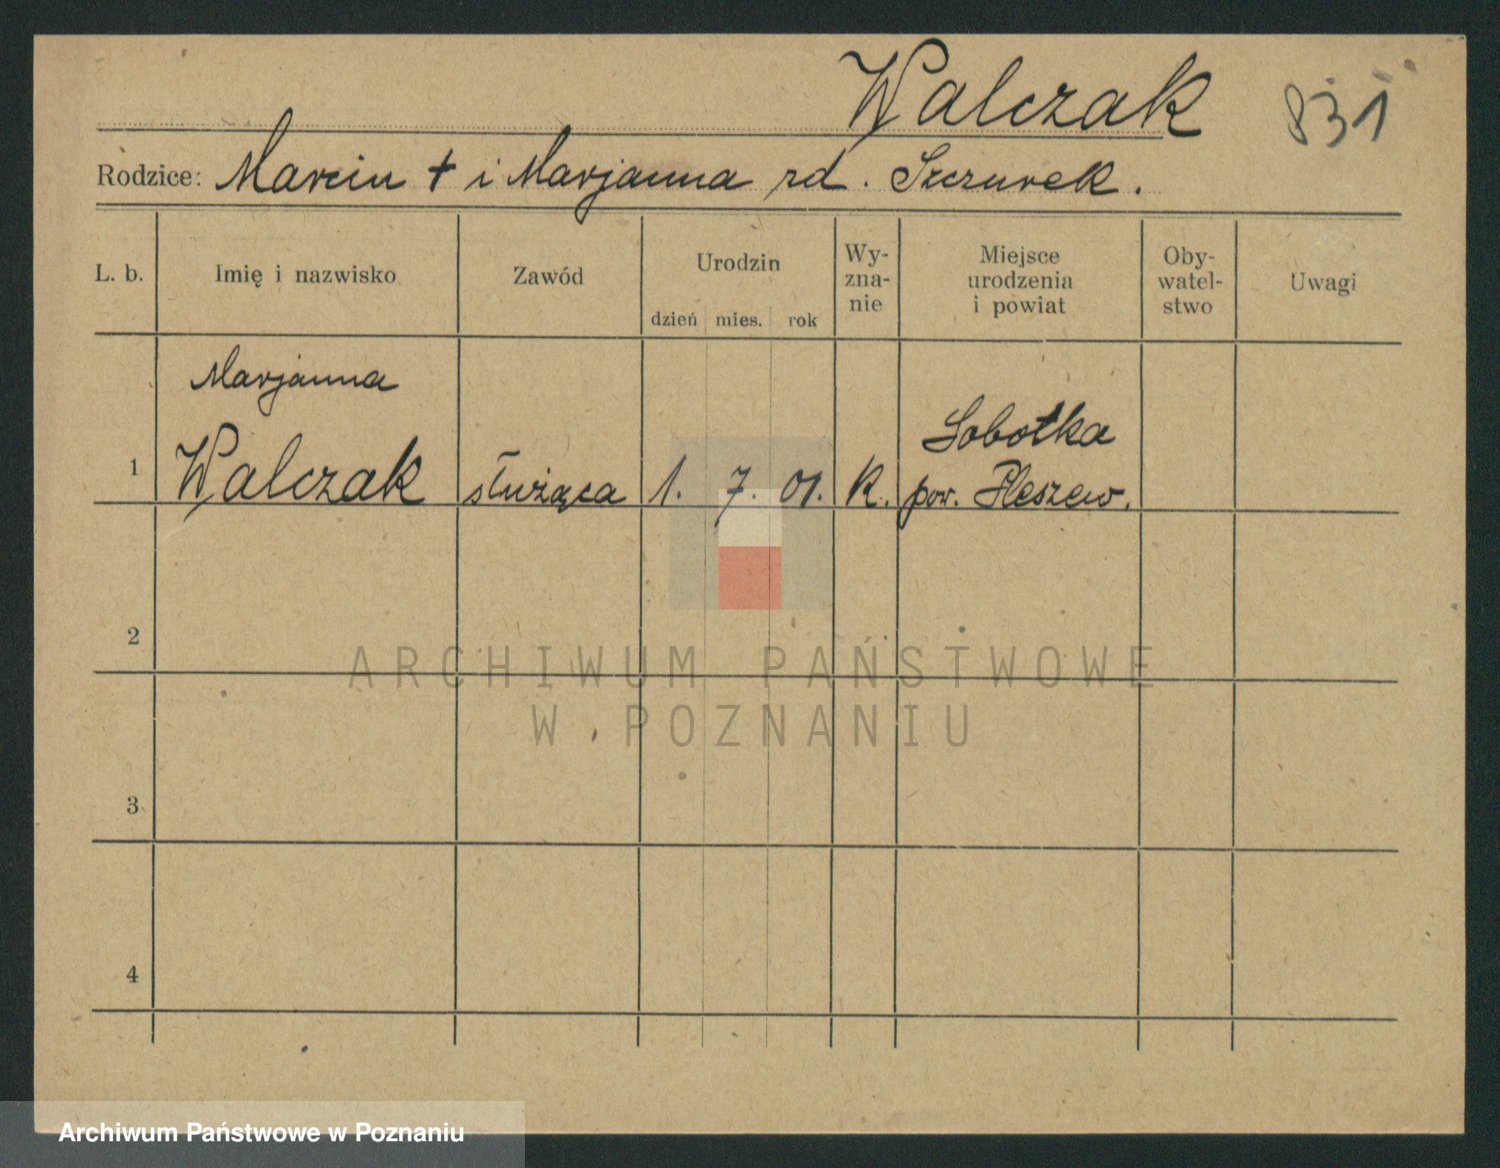 Walczak 831
Rodzice: Marcin + i Marjanna rd. Szczurek.
L. b. Imię i nazwisko Zawód Urodzin Wy- Miejsce Oby- Uwagi
zna- urodzenia watel-
nie i powiat stwo
dzień mies. rok
Marjanna
Sobotka
1 Walczak służąca 1. 7. 01. K. pow. Pleszew.
2
ARCHIWUM PAŃSTWOWE
W POZNANIU
3
4
Archiwum Państwowe w Poznaniu